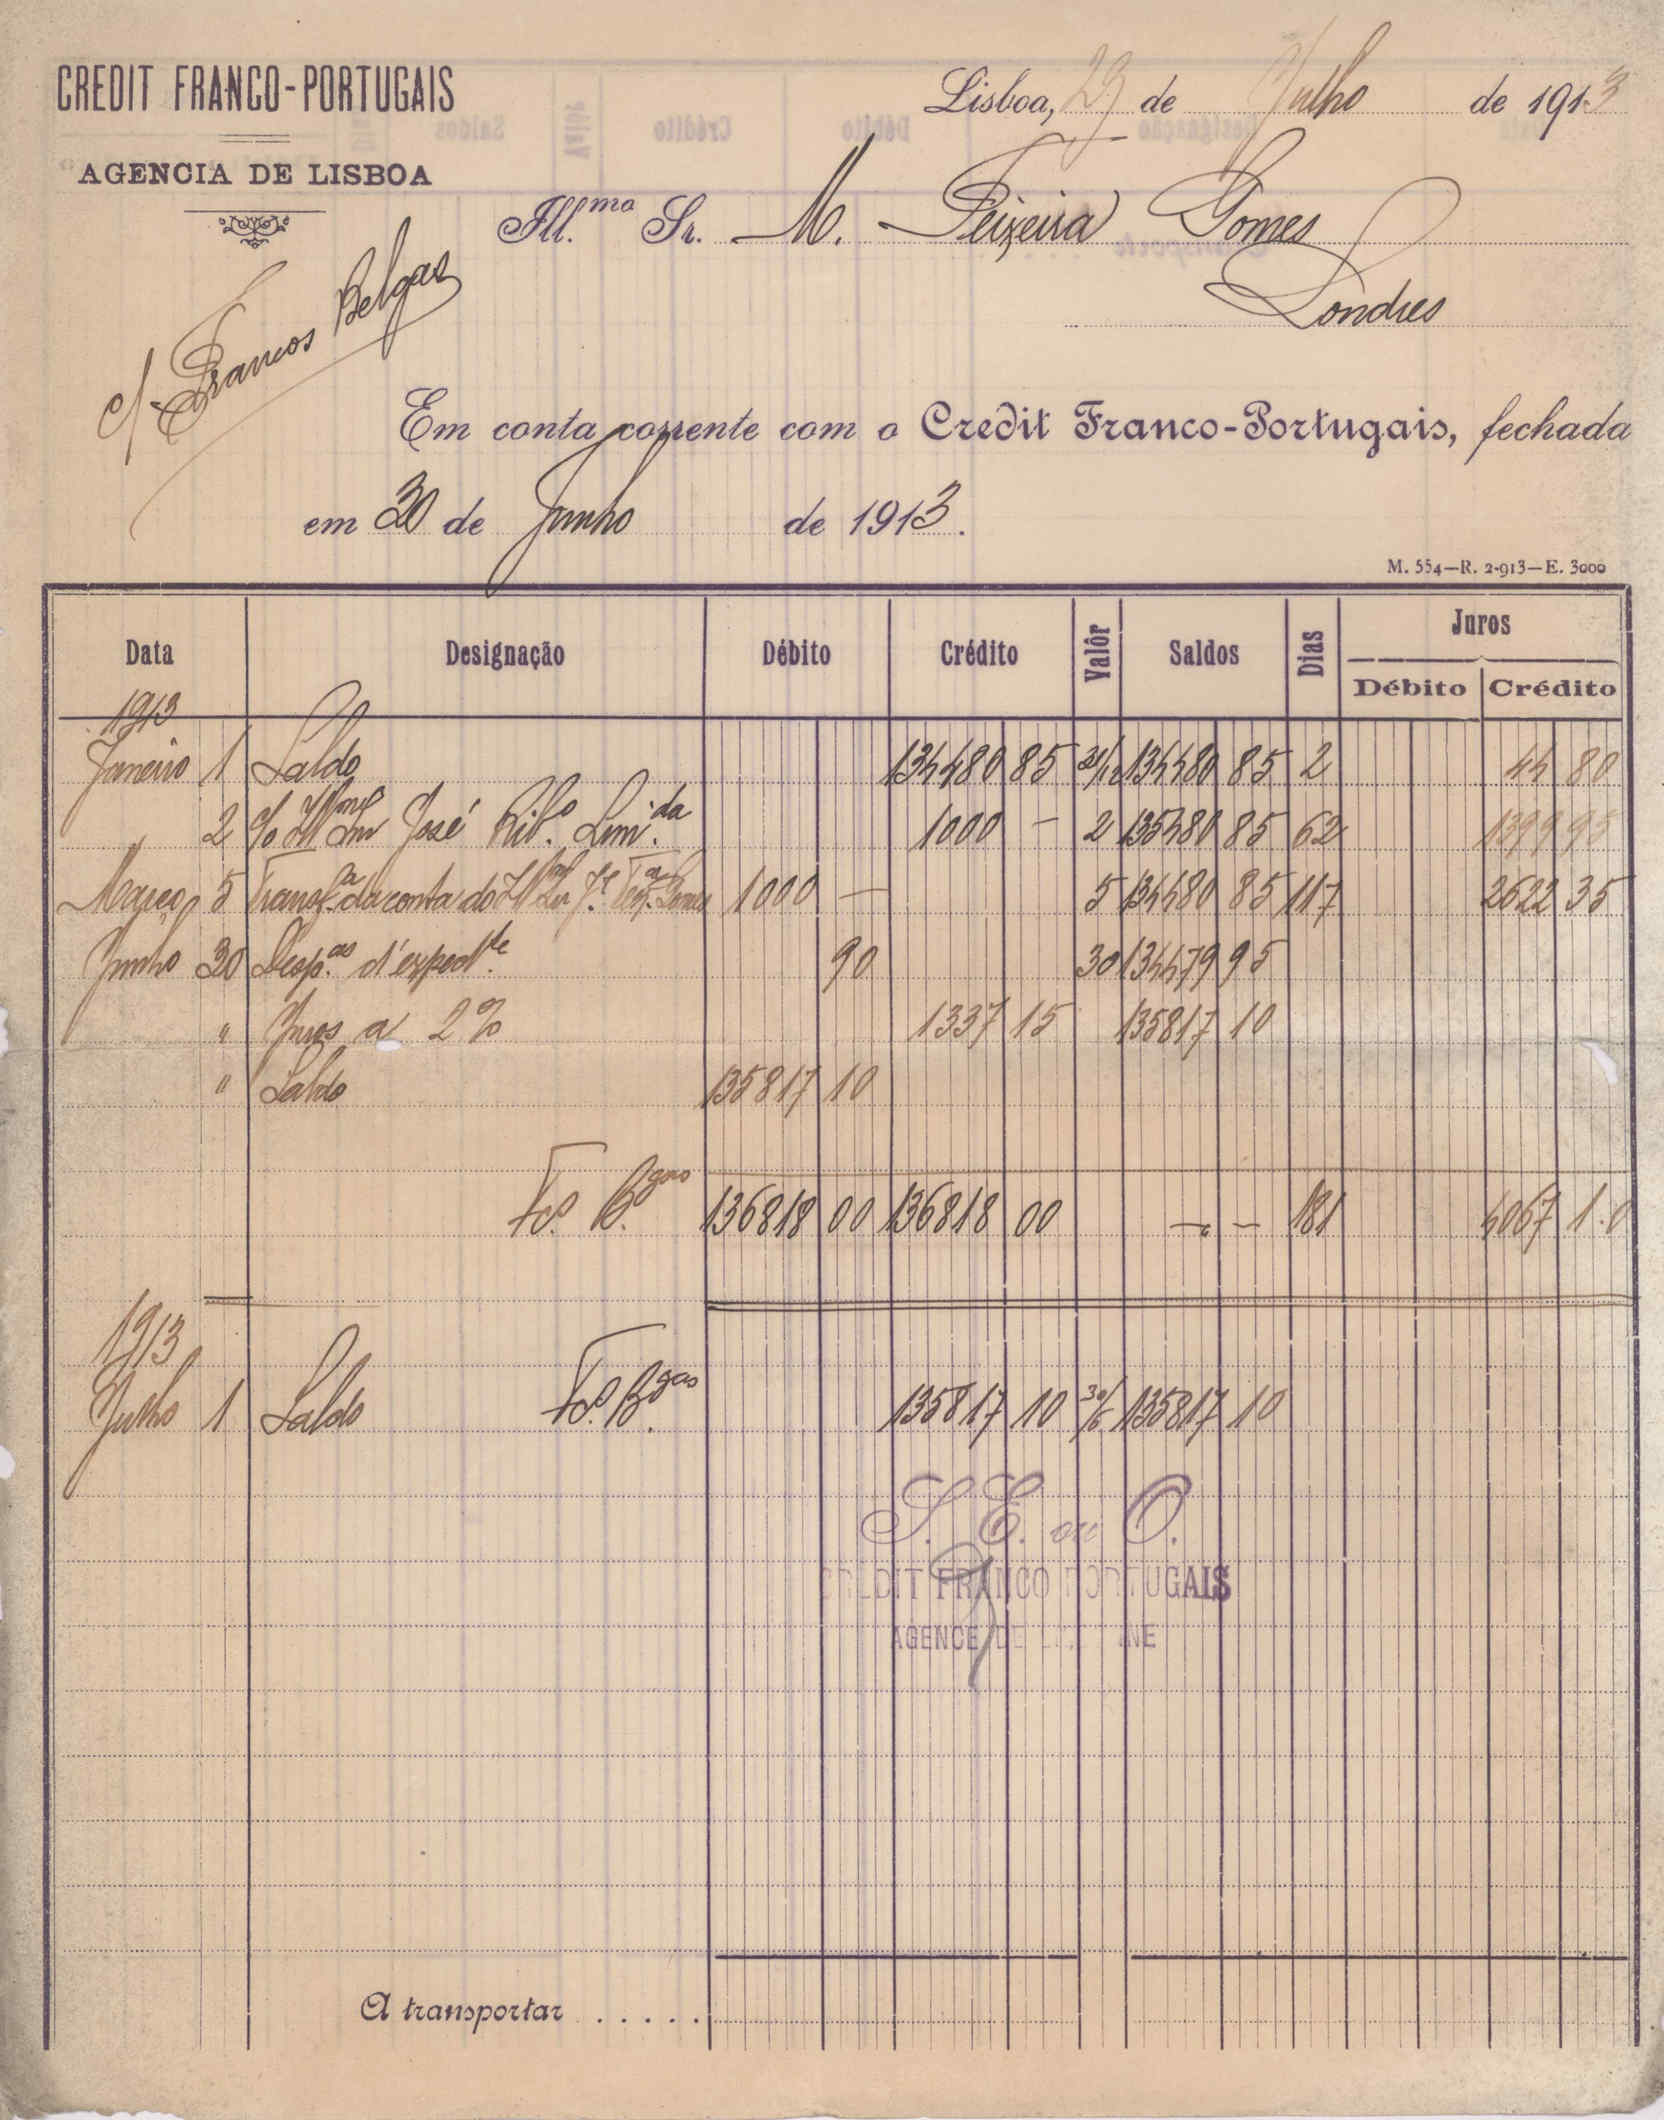 CREDIT FRANCO-PORTUGAIS
AGENCIA DE LISBOA
Lisboa, 23 de Julho de 1913
Ill.mo Sr. M. Teixeira Gomes
Londres
c/ Francos Belgas
Em conta corrente com o Credit Franco-Portugais, fechada
em 30 de Junho de 1913.
M. 554—R. 2-913—E. 3000
Data Designação Débito Crédito Valôr Saldos Dias Juros
Débito Crédito
1913
Janeiro 1 Saldo 134480 85 31/12 134480 85 2 44 80
2 % Ill.mo Snr José Rib.o Lim.da 1000 — 2 135480 85 62 1399 95
Março 5 Transf.a da conta do Ill.mo Snr J.e Teix.a Gomes 1000 — 5 134480 85 117 2622 35
Junho 30 Desp.as d'exped.te 90 30 134479 95
" Juros a 2% 1337 15 135817 10
" Saldo 135817 10
Fcs. B.gas 136818 00 136818 00 — — 181 4067 10
1913
Julho 1 Saldo Fcs. B.gas 135817 10 30/6 135817 10
S. E. ou O.
CREDIT FRANCO PORTUGAIS
AGENCE DE
A transportar . . . . .